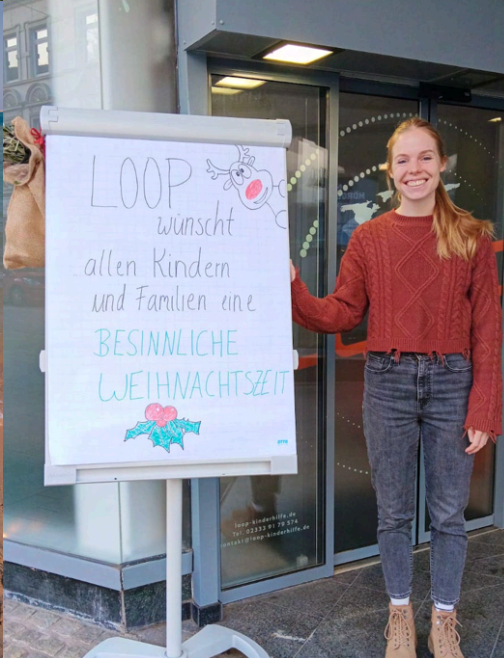 LOOP
wünscht
allen Kindern
und Familien eine
BESINNLICHE
WEIHNACHTSZEIT
loop-kinderhilfe.de
Tel 02333 91 79 574
contact@loop-kinderhilfe.de